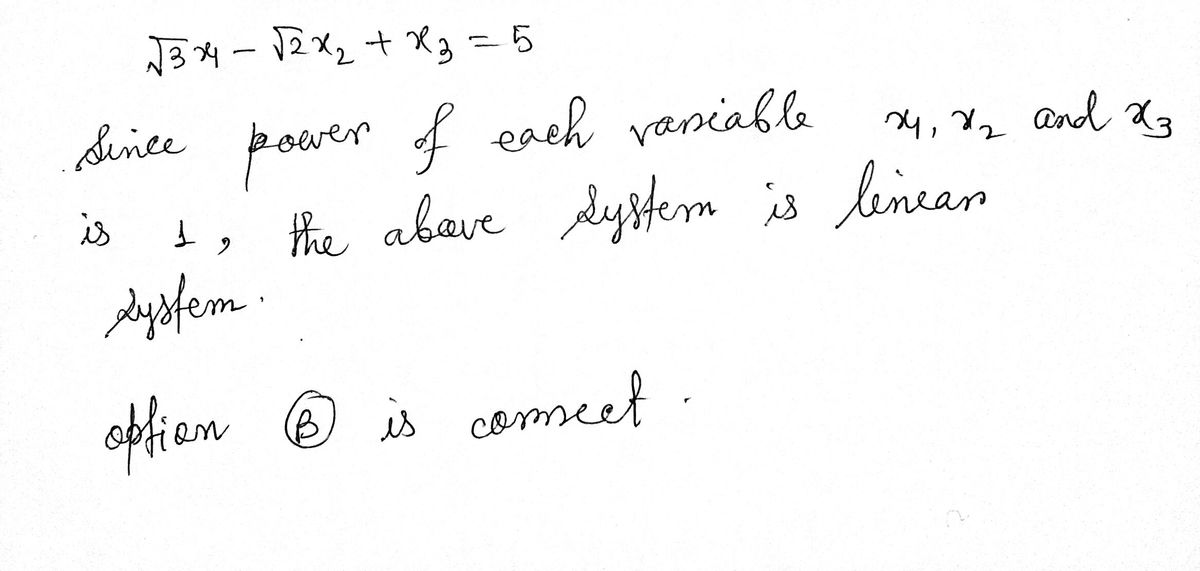 √3x₁ - √2x₂ + x₃ = 5
Since power of each variable x₁, x₂ and x₃
is 1, the above system is linear
system.
option Ⓑ is correct.